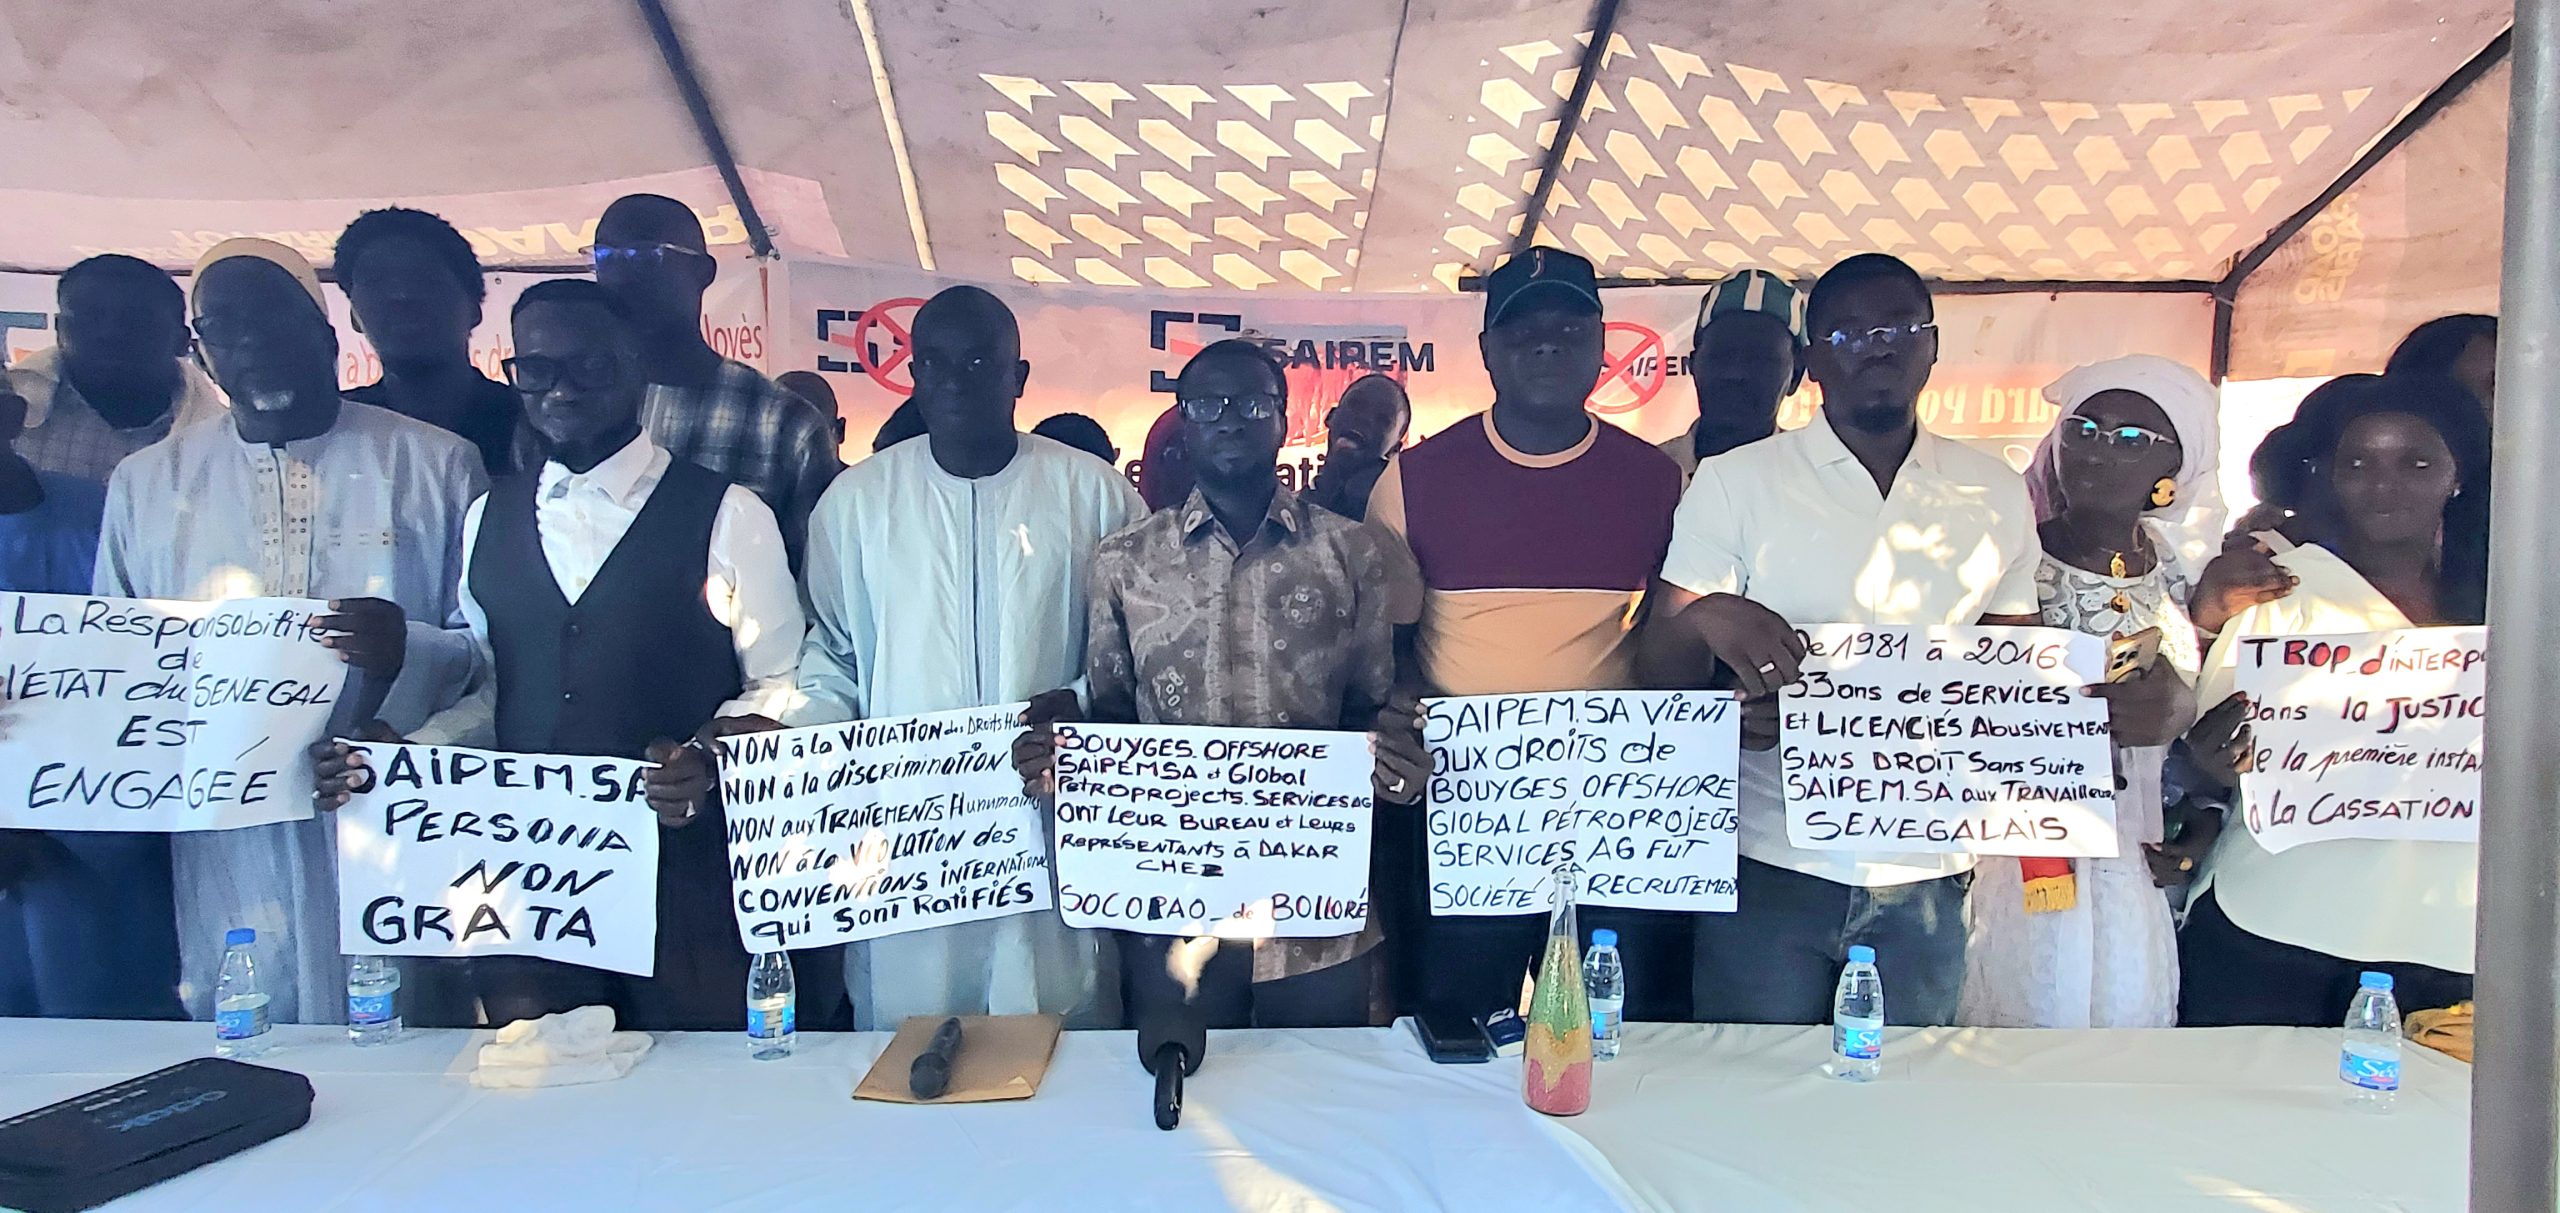 SAIPEM
La Résponsabilité
de
l'ETAT du SENEGAL
EST
ENGAGÉE
SAIPEM.SA
PERSONA
NON
GRATA
NON à la VIOLATION des DROITS
NON à la discrimination
NON aux TRAITEMENTS
NON à la VIOLATION des
CONVENTIONS
qui SONT RatifiÉS
BOUYGES OFFSHORE
SAIPEMSA et Global
PETROPROJECTS SERVICES AG
ONT LEUR BUREAU et LEURS
REPRÉSENTANTS à DAKAR
CHEZ
SOCOPAO de BOLLORÉ
SAIPEM.SA VIENT
aux droits de
BOUYGES OFFSHORE
GlOBAL PÉTROPROJECTS
SERVICES AG FUT
SOCIÉTÉ RECRUTEMENT
De 1981 à 2016
33ans de SERVICES
Et LICENCIÉS Abusivement
SANS DROIT Sans Suite
SAIPEM.SA aux TRAVAilleurs
SENEGALAIS
TROP d'INTERP
dans la JUSTIC
de la première insta
à La CASSATION
Séo